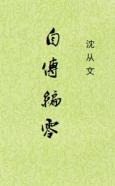 沈从文
自傳編零